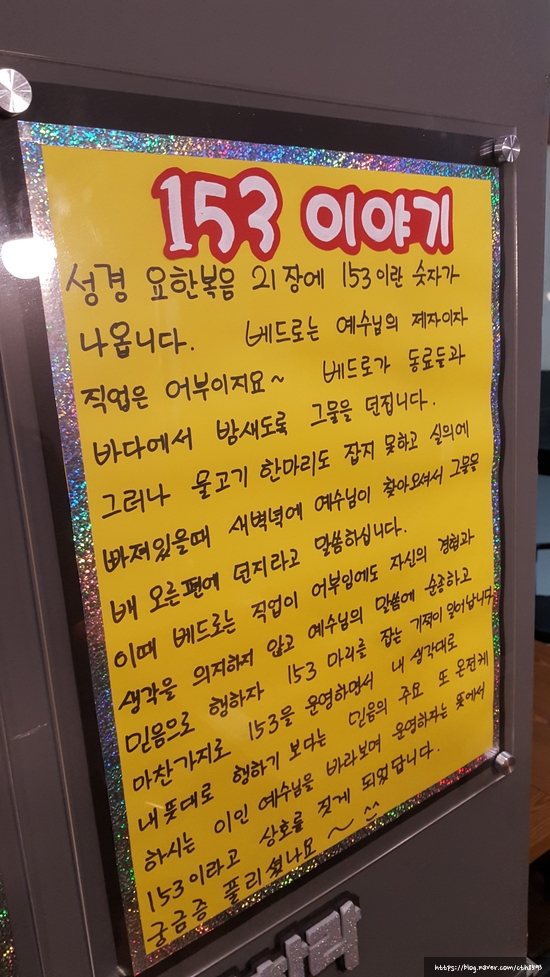 153 이야기
성경 요한복음 21장에 153이란 숫자가
나옵니다. 베드로는 예수님의 제자이자
직업은 어부이지요~ 베드로가 동료들과
바다에서 밤새도록 그물을 던집니다.
그러나 물고기 한마리도 잡지 못하고 실의에
빠져있을때 새벽녘에 예수님이 찾아오셔서 그물을
배 오른편에 던지라고 말씀하십니다.
이때 베드로는 직업이 어부임에도 자신의 경험과
생각을 의지하지 않고 예수님의 말씀에 순종하고
믿음으로 행하자 153 마리를 잡는 기적이 일어납니다
마찬가지로 153을 운영하면서 내 생각대로
내 뜻대로 행하기 보다는 믿음의 주요 또 온전케
하시는 이인 예수님을 바라보며 운영하자는 뜻에서
153이라고 상호를 짓게 되었답니다.
궁금증 풀리셨나요~ ^^
https://blog.naver.com/cth1593